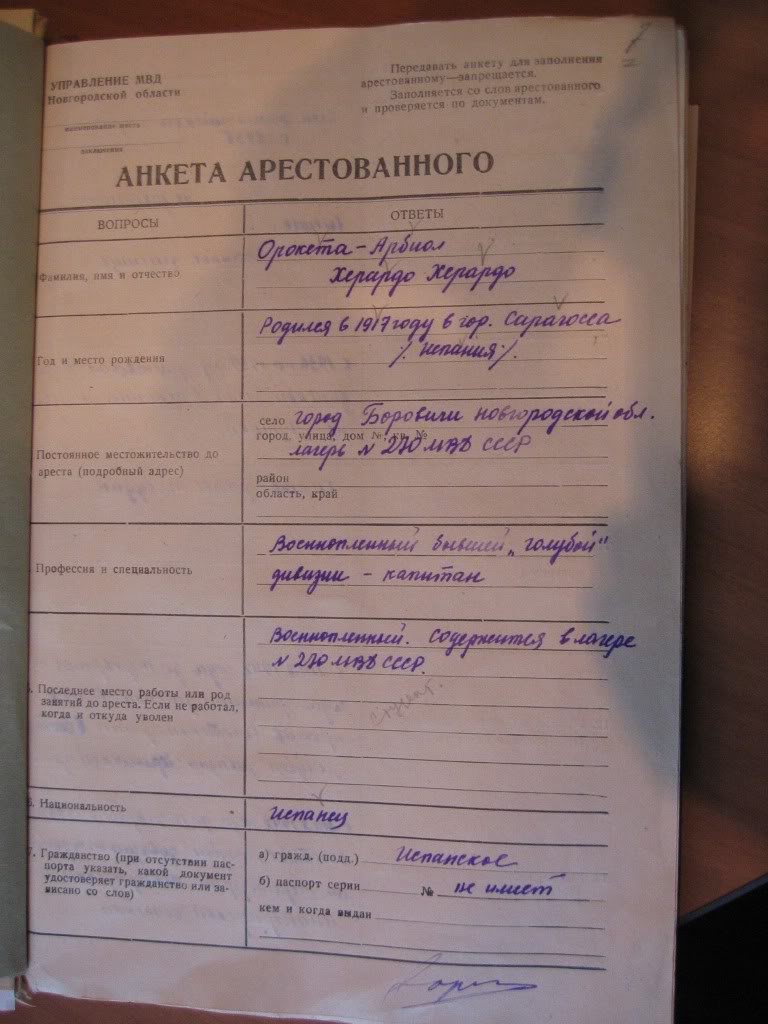 УПРАВЛЕНИЕ МВД
Новгородской области
Передавать анкету для заполнения
арестованному—запрещается.
Заполняется со слов арестованного
и проверяется по документам.
АНКЕТА АРЕСТОВАННОГО
ВОПРОСЫ
ОТВЕТЫ
Фамилия, имя и отчество
Орокета - Арбиол
Херардо Херардо
Год и место рождения
Родился в 1917 году в гор. Сарагосса
/. Испания /.
Постоянное местожительство до
ареста (подробный адрес)
село город Боровичи новгородской обл.
город, улица, дом №, кв. №
лагерь N 270 МВД СССР
район
область, край
Профессия и специальность
Военнопленный бывшей „голубой"
дивизии - капитан
Последнее место работы или род
занятий до ареста. Если не работал,
когда и откуда уволен
Военнопленный. Содержится в лагере
N 270 МВД СССР.
студент.
6. Национальность
Испанец
7. Гражданство (при отсутствии пас-
порта указать, какой документ
удостоверяет гражданство или за-
писано со слов)
а) гражд. (подд.) Испанское
б) паспорт серии № не имеет
кем и когда выдан